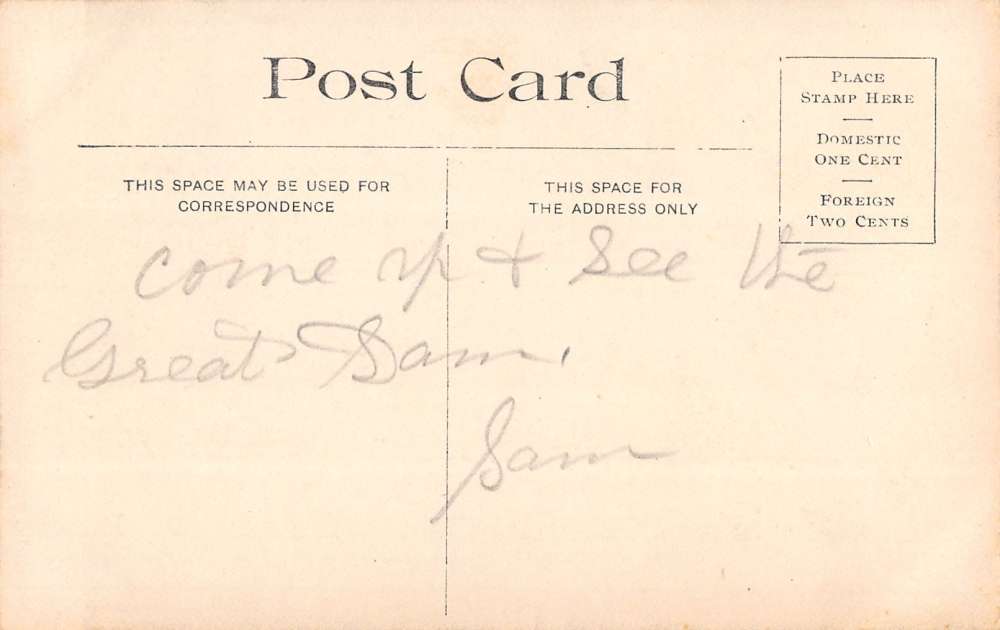 Post Card
PLACE
STAMP HERE
DOMESTIC
ONE CENT
FOREIGN
TWO CENTS
THIS SPACE MAY BE USED FOR
CORRESPONDENCE
THIS SPACE FOR
THE ADDRESS ONLY
come up + See the
Great Dam.
Sam